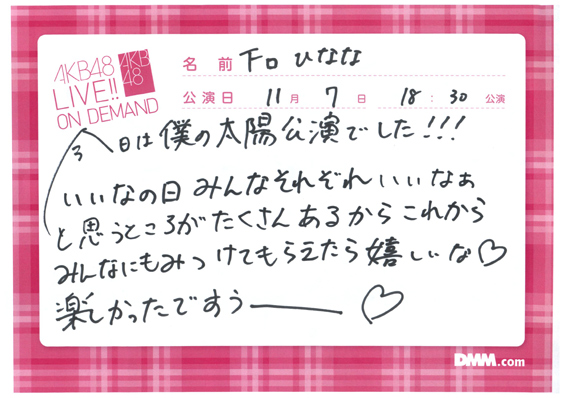 AKB48
LIVE!!
ON DEMAND
AKB
48
名 前 下口 ひなな
公演日 11月 7日 18:30 公演
今日は僕の太陽公演でした!!!
いいなの日 みんなそれぞれいいなぁ
と思うところがたくさんあるからこれから
みんなにもみつけてもらえたら嬉しいな♡
楽しかったですぅー ♡
DMM.com